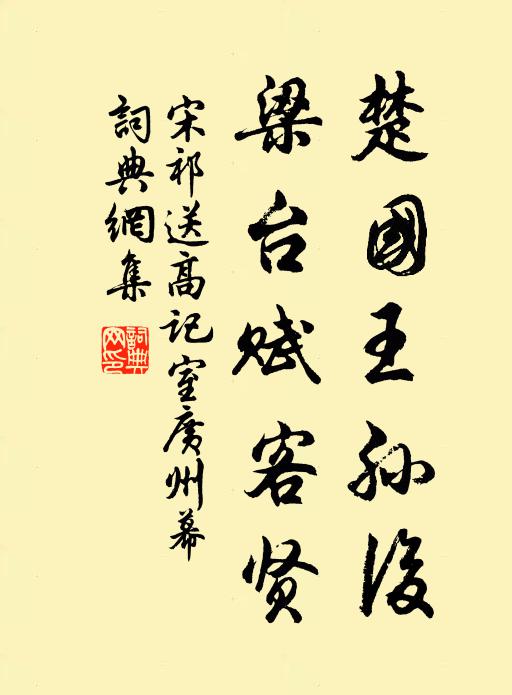 楚國王孫後
梁台賦客賢
宋祁送高記室廣州幕
詞典網集
詞典
网印